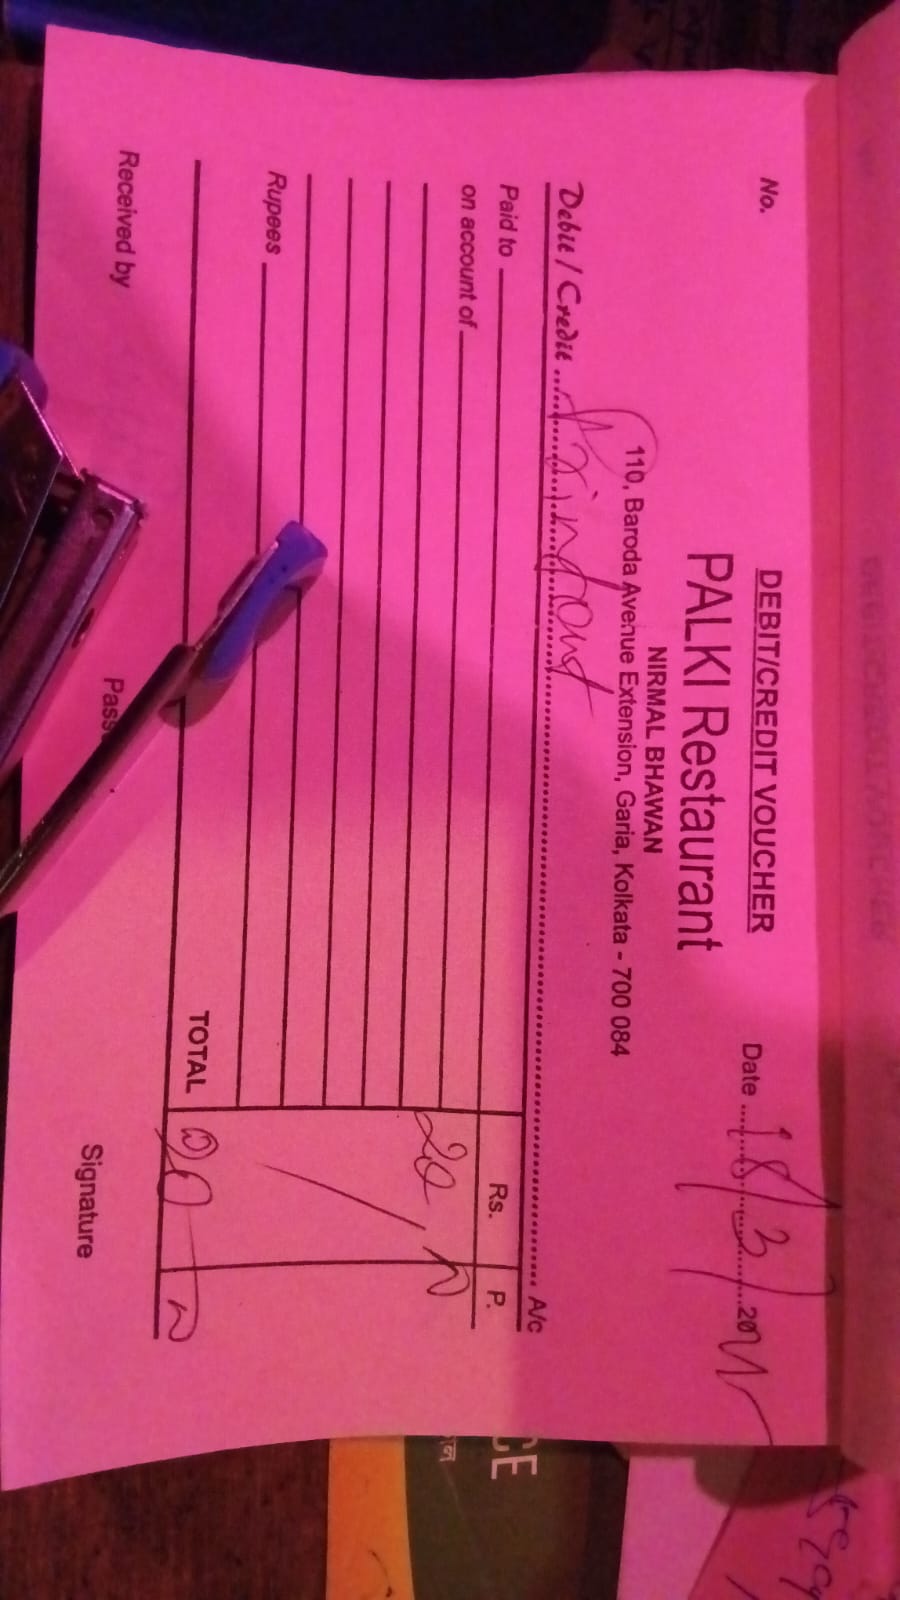 DEBIT/CREDIT VOUCHER
No.
Date 18/3/20
PALKI Restaurant
NIRMAL BHAWAN
110, Baroda Avenue Extension, Garia, Kolkata - 700 084
Debit / Credit A/c
Paid to Rs. P.
on account of
20
Rupees
TOTAL 20
Received by Pass Signature
CE